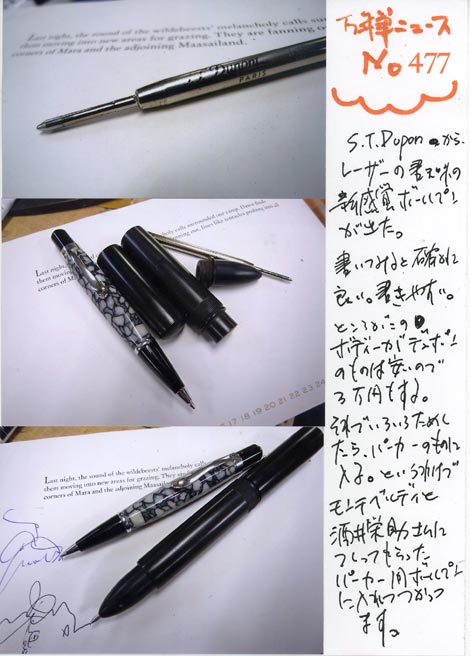 Last night, the sound of the wildebeests' melancholy calls
them moving into new areas for grazing. They are fanning
corners of Mara and the adjoining Maasailand.
S.T. Dupont
PARIS
Last night,
them moving
corners of Ma
17 18 19 20 21 22 23 24
Last night, the sound of the wildebeests' melancholy calls
them moving into new areas for grazing. They are
corners of Mara and the adjoining Maasailand.
万年筆ニュース
No 477
S.T.Duponから
レーザーの書き味の
新感覚ボールペン
が出た。
書いてみると確かに
良い。書きやすい。
ところがこの
ボディーがデュポン
のものは安いので
3万円もする。
それでいろいろためし
たら、パーカーのものに
入る。というわけで
モンテベルディと
酒井栄助さんに
つくってもらった
パーカー用ボールペン
に入れてつかって
ます。